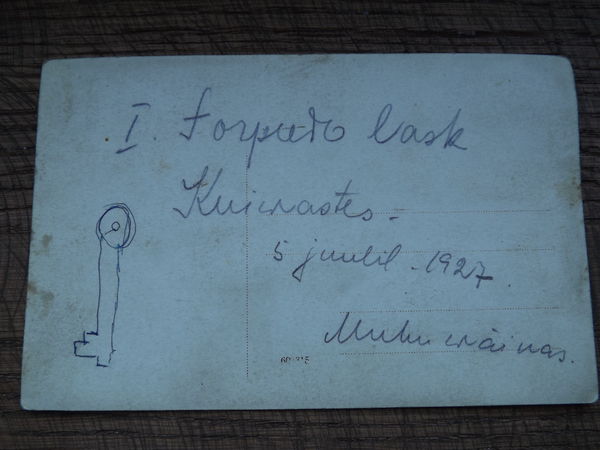 I. Torpedo lask
Kuivastes -
5 juulil. 1927.
Muhu väinas.